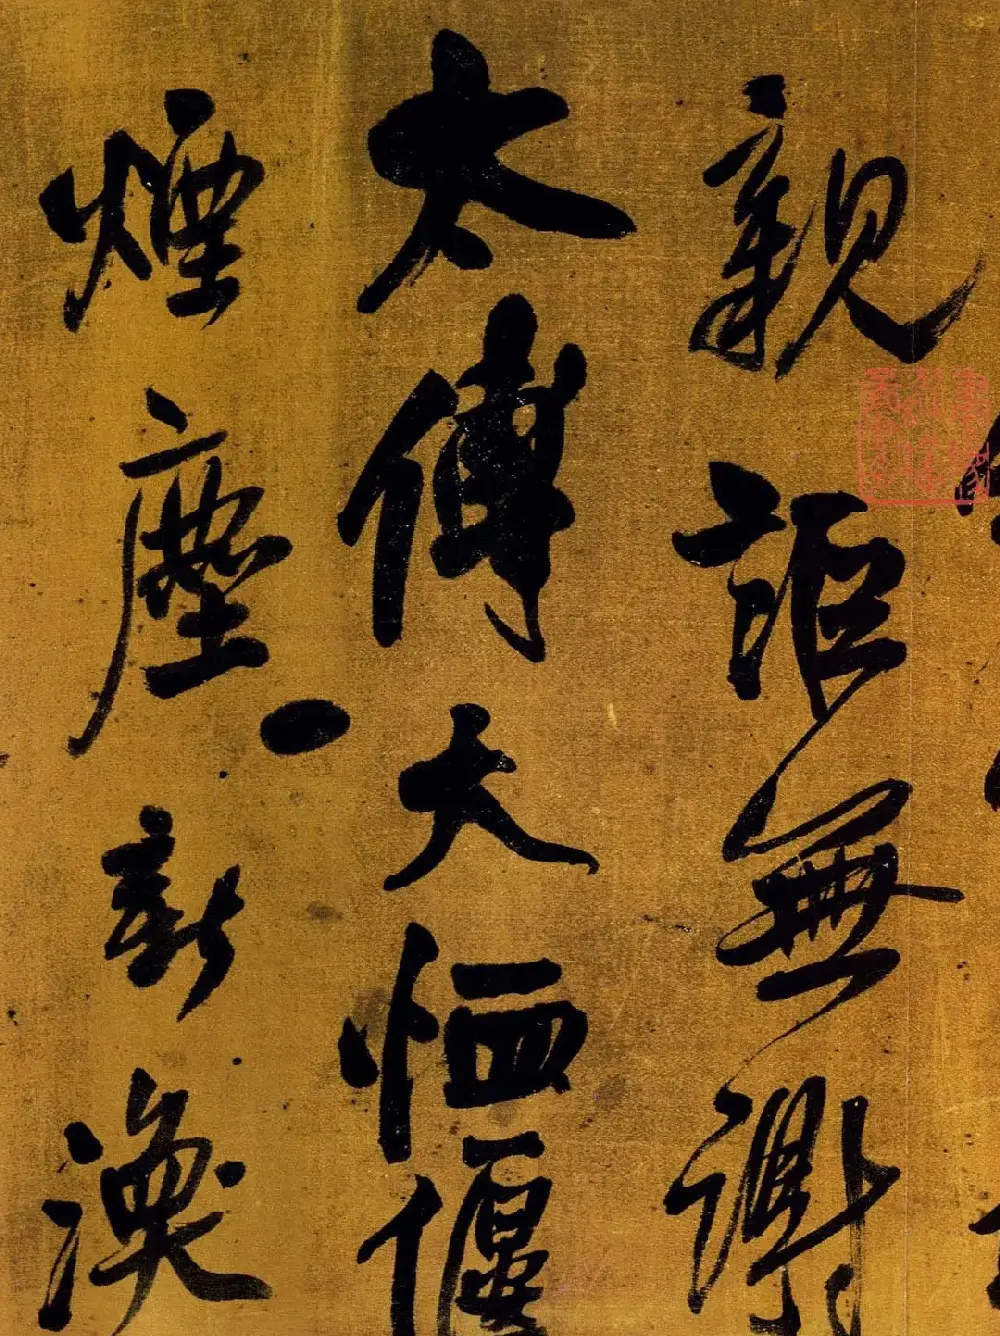 親詎無謝
太傅大恤偃
煙塵新渙